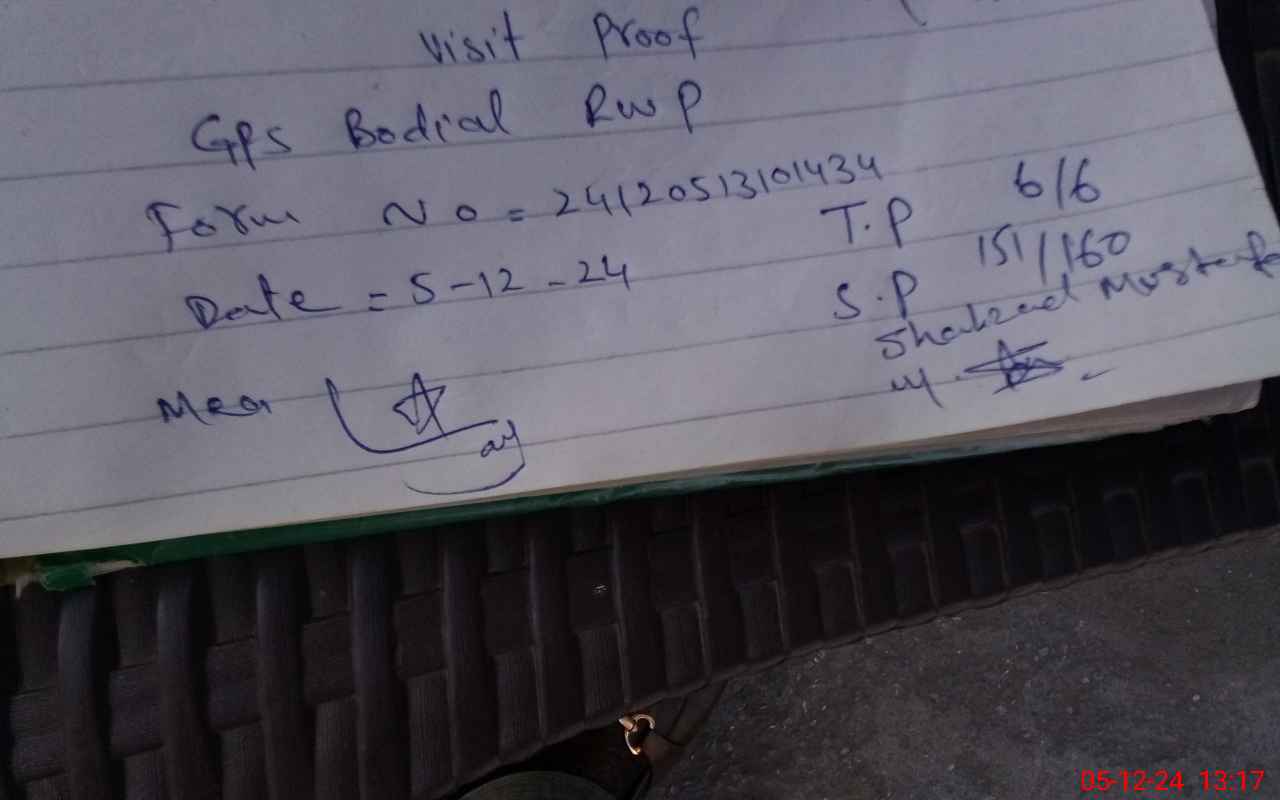 Visit Proof
GPS Bodial RWP
Form No = 24120513101434
Date = 5-12-24
T.P 6/6
S.P 151/160
Shahzad Mustafa
Mea
05-12-24 13:17